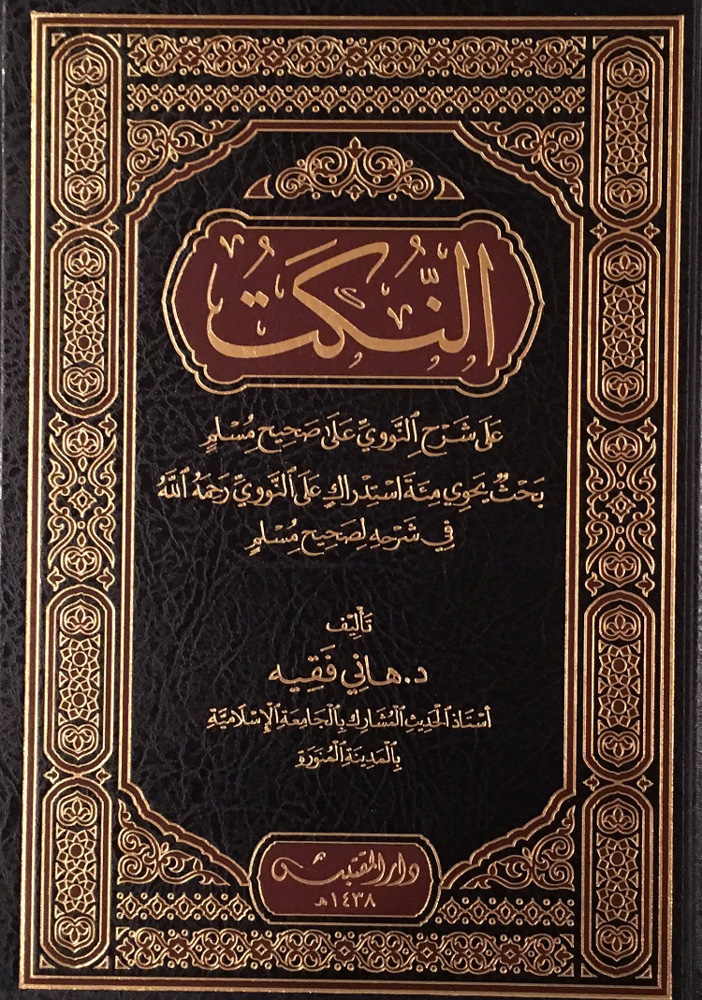 النُّكَتُ
عَلَى شَرْحِ النَّوَوِيِّ عَلَى صَحِيحِ مُسْلِمٍ
بَحْثٌ يَحْوِي مِئَةَ اسْتِدْرَاكٍ عَلَى النَّوَوِيِّ رَحِمَهُ اللَّهُ
فِي شَرْحِهِ لِصَحِيحِ مُسْلِمٍ
تَأْلِيف
د. هَانِي فَقِيه
أُسْتَاذ الْحَدِيثِ الْمُشَارِك بِالْجَامِعَةِ الْإِسْلَامِيَّةِ
بِالْمَدِينَةِ الْمُنَوَّرَةِ
دار المقتبس
١٤٣٨هـ